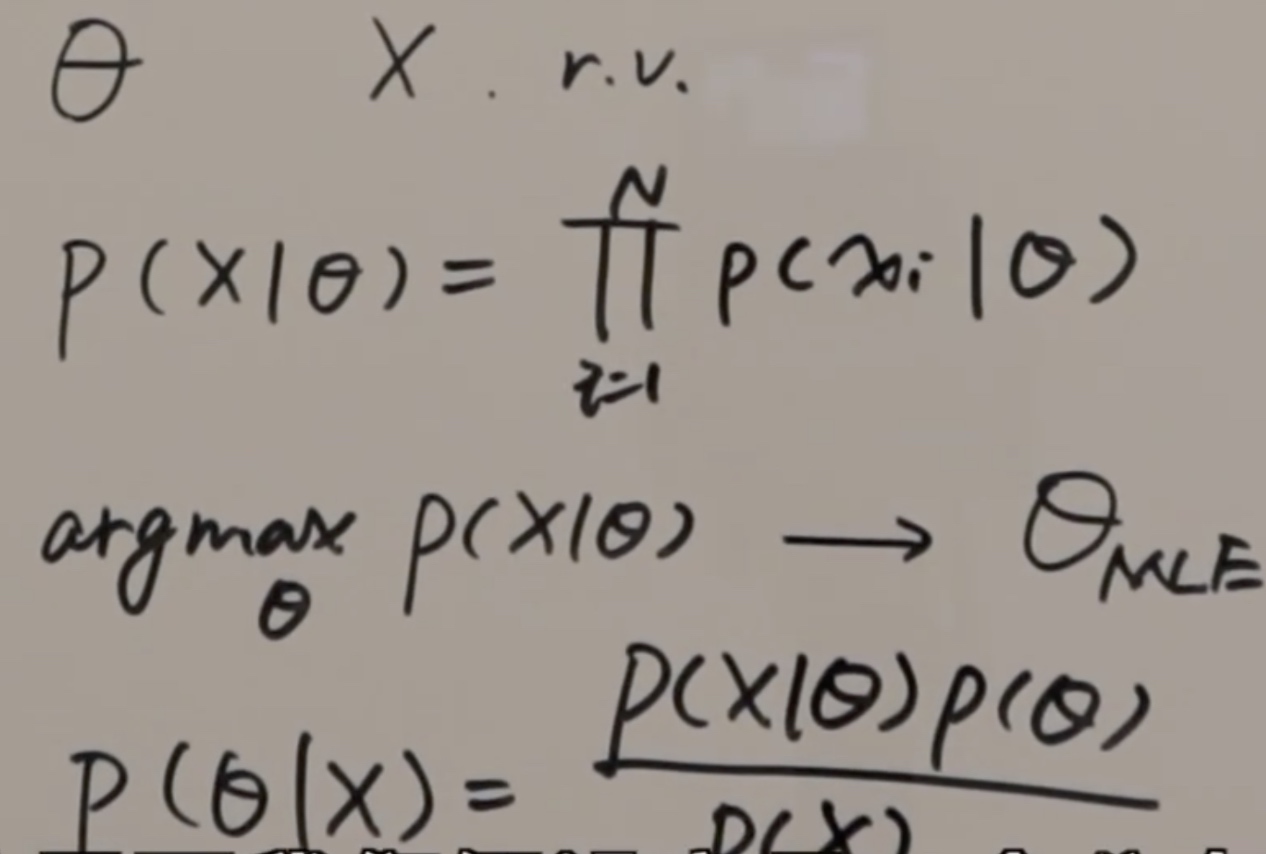 θ X. r.v.
P(X|θ) = ∏_{i=1}^{N} p(x_i|θ)
argmax_θ P(X|θ) → θ_MLE
P(θ|X) = P(X|θ)P(θ) / P(X)